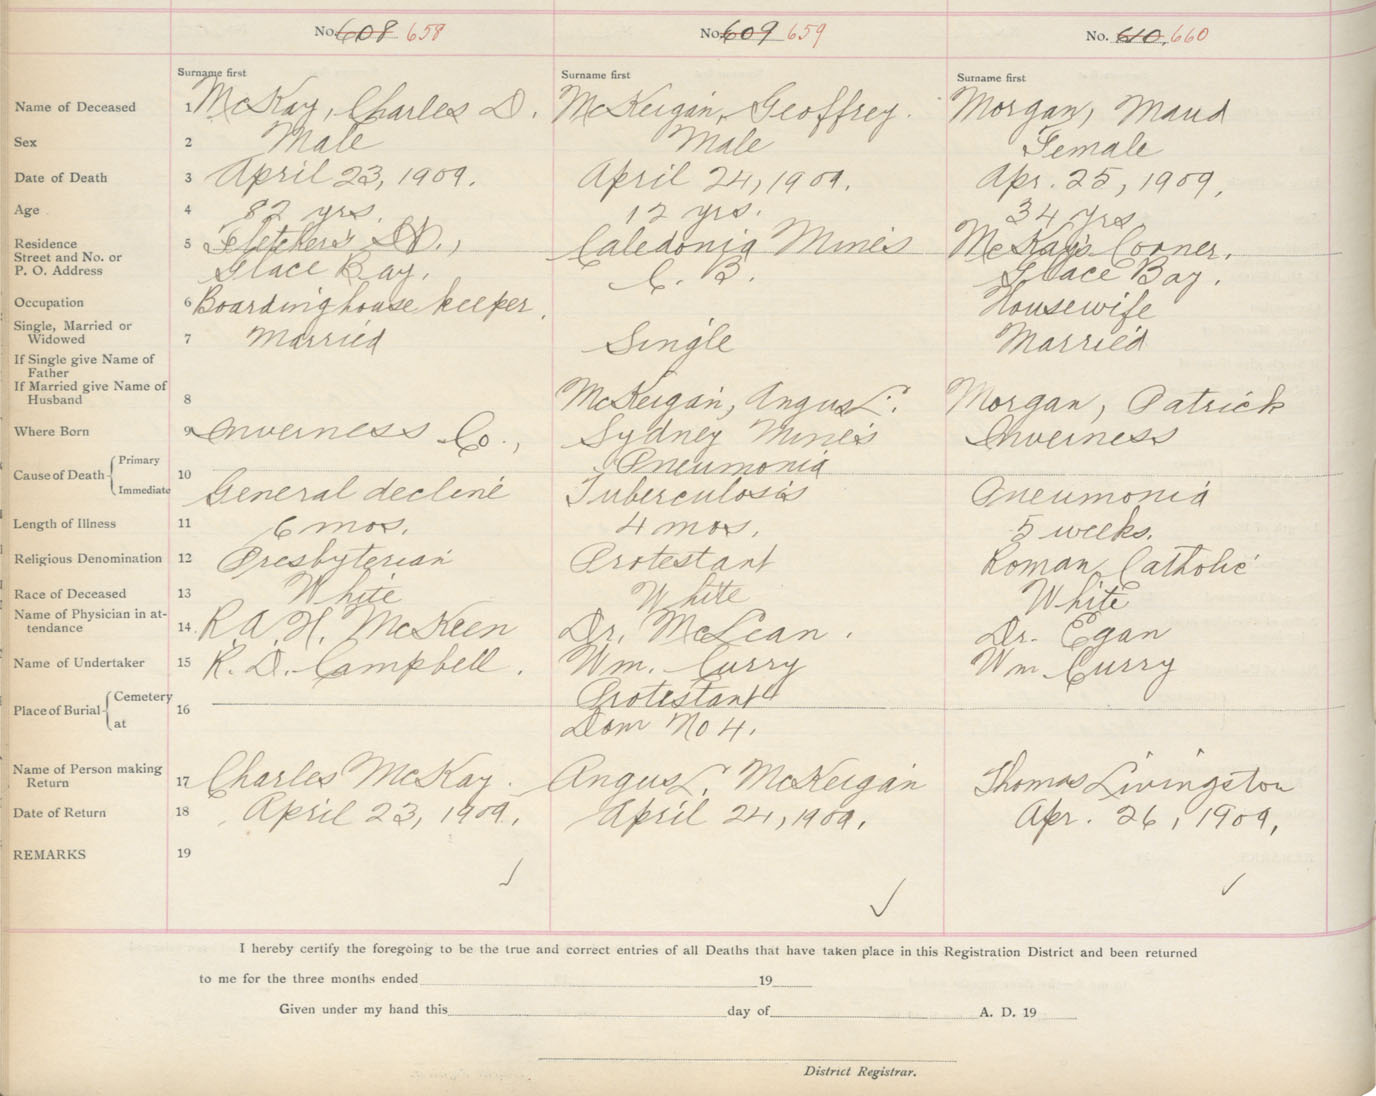 No. 608 658
No. 609 659
No. 610. 660
Surname first
Surname first
Surname first
Name of Deceased 1 McKay, Charles D. McKeigan, Geoffrey. Morgan, Maud
Sex 2 Male Male Female
Date of Death 3 April 23, 1909. April 24, 1909. Apr. 25, 1909.
Age 4 82 yrs. 12 yrs. 34 yrs.
Residence 5 Fletcher's Caledonia Mines McKay's Corner,
Street and No. or
P. O. Address Glace Bay. C. B. Glace Bay.
Occupation 6 Boardinghouse keeper. Housewife
Single, Married or
Widowed 7 Married Single Married
If Single give Name of
Father
If Married give Name of
Husband 8 McKeigan, Angus L. Morgan, Patrick
Where Born 9 Inverness Co., Sydney Mines Inverness
Cause of Death Primary 10 Pneumonia
Immediate General decline Tuberculosis Pneumonia
Length of Illness 11 6 mos. 4 mos. 5 weeks.
Religious Denomination 12 Presbyterian Protestant Roman Catholic
Race of Deceased 13 White White White
Name of Physician in at-
tendance 14 R. A. H. McKeen Dr. McLean. Dr. Egan
Name of Undertaker 15 R. D. Campbell. Wm. Curry Wm. Curry
Place of Burial Cemetery 16 Protestant
at Dom No 4.
Name of Person making
Return 17 Charles McKay. Angus L. McKeigan Thomas Livingston
Date of Return 18 April 23, 1909. April 24, 1909. Apr. 26, 1909.
REMARKS 19
I hereby certify the foregoing to be the true and correct entries of all Deaths that have taken place in this Registration District and been returned
to me for the three months ended 19
Given under my hand this day of A. D. 19
District Registrar.